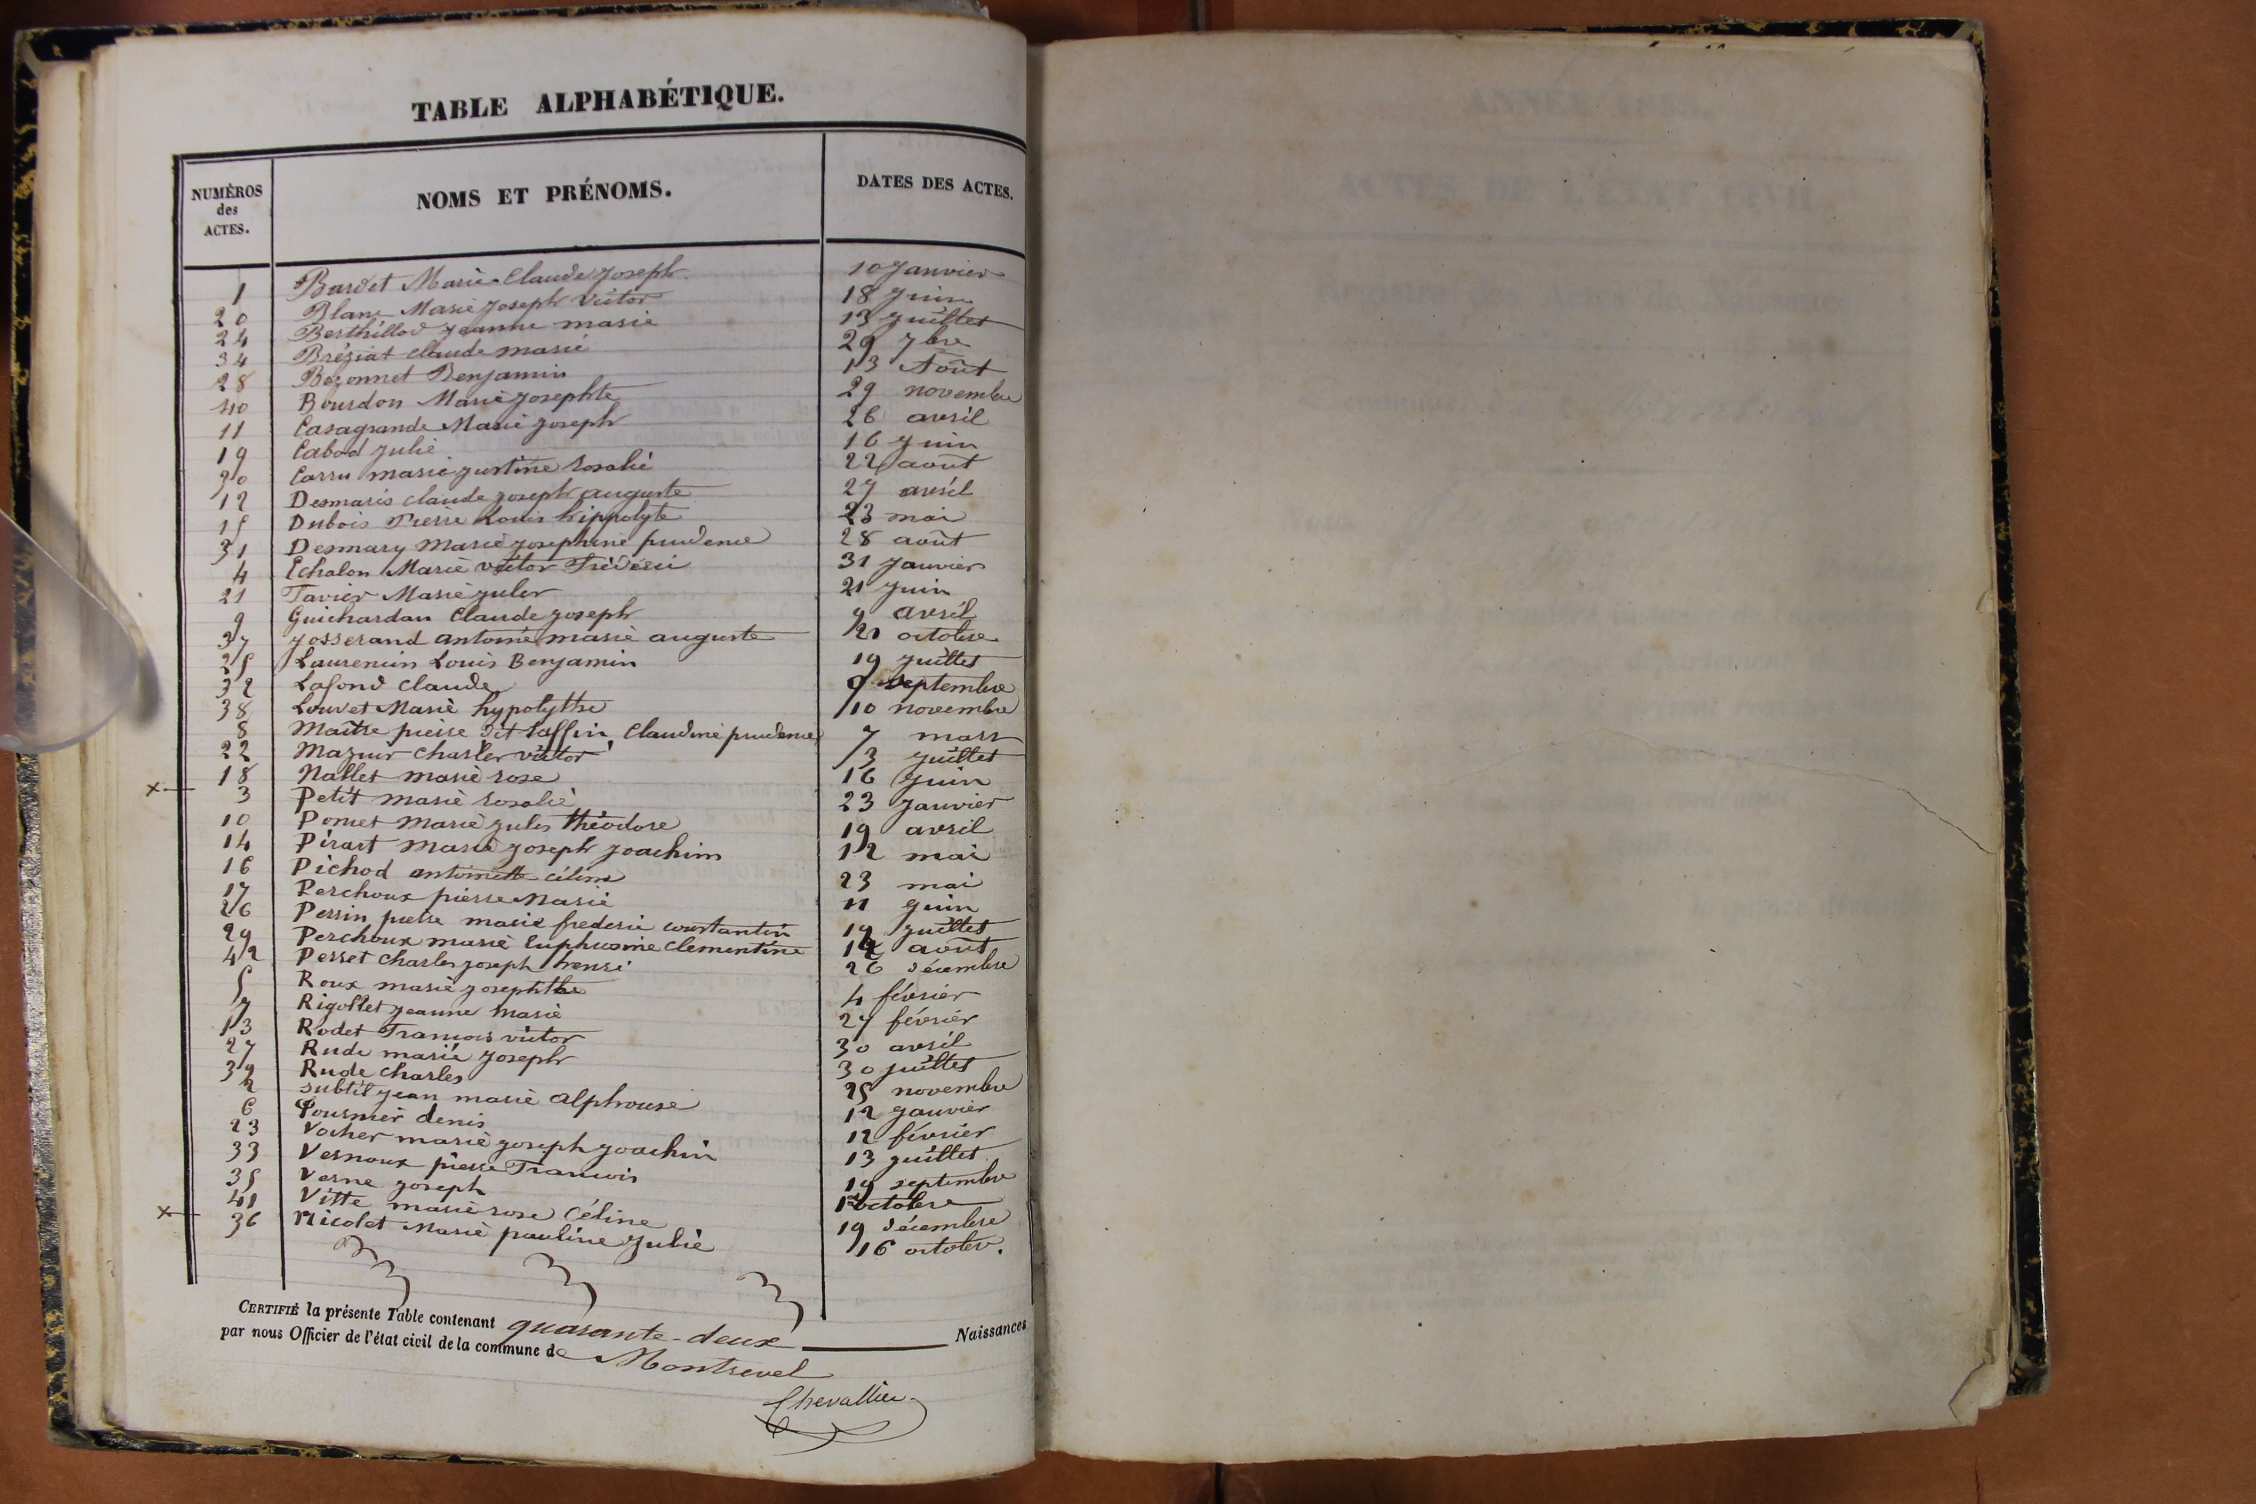 TABLE ALPHABÉTIQUE.
NUMÉROS des ACTES. NOMS ET PRÉNOMS. DATES DES ACTES.
1 Bardet Marie Claude Joseph 10 Janvier
20 Blanc Marie Joseph Victor 18 Juin
24 Berthillod Jeanne marie 13 Juillet
34 Bréziat Claude marie 29 7bre
28 Bozonnet Benjamin 13 Août
40 Bourdon Marie Josephte 29 novembre
11 Casagrande Marie Joseph 26 avril
19 Cabod Julie 16 Juin
30 Carru marie justine rosalie 22 août
12 Desmaris claude joseph auguste 27 avril
15 Dubois Pierre Louis hippolyte 23 mai
31 Desmary Marie josephine prudence 28 août
4 Echalon Marie victor Frédéric 31 Janvier
21 Favier Marie jules 21 Juin
9 Guichardan Claude joseph 9 avril
37 Josserand antoine marie auguste 21 octobre
25 Laurencin Louis Benjamin 19 Juillet
32 Lafond claude 9 septembre
38 Louvet Marie hypolythe 10 novembre
8 Maître pierre dit Laffin Claudine prudence 7 mars
22 Mazuir Charles victor 3 Juillet
18 Nallet marie rose 16 Juin
3 Petit marie rosalie 23 Janvier
10 Pomet marie jules théodore 19 avril
14 Pirart marie joseph joachim 12 mai
16 Pichod antoinette céline 23 mai
17 Perchoux pierre Marie 11 Juin
26 Perrin pierre marie frederic constantin 19 Juillet
29 Perchoux marie Euphrosine clementine 14 août
42 Perret charles joseph henri 26 décembre
5 Roux marie josephthe 4 février
7 Rigollet jeanne Marie 27 février
13 Rodet Francois victor 30 avril
27 Rude marie joseph 30 juillet
39 Rude charles 25 novembre
2 subtil jean marie alphonse 12 Janvier
6 Tournier denis 12 février
23 Vocher marie joseph joachin 13 juillet
33 Vernoux pierre Francois 19 septembre
35 Verne joseph 1er octobre
41 Vitte marie rose Céline 19 décembre
36 Nicolet Marie pauline Julie 16 octobre.
CERTIFIÉ la présente Table contenant quarante-deux Naissances
par nous Officier de l'état civil de la commune de Montrevel
Chevallier